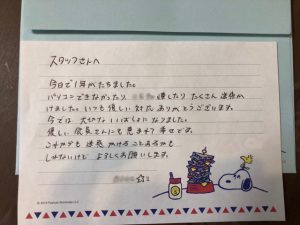 スタッフさんへ
今日で1年がたちました。
パソコンできなかったり 壊したり たくさん 迷惑か
けました。いつも優しい対応ありがとうございます。
今では 大切な いばしょに なりました。
優しい 会員さんにも 恵まれて 幸せです。
これからも 迷惑 かける こともあるかも
しれないけど よろしくお願いします。